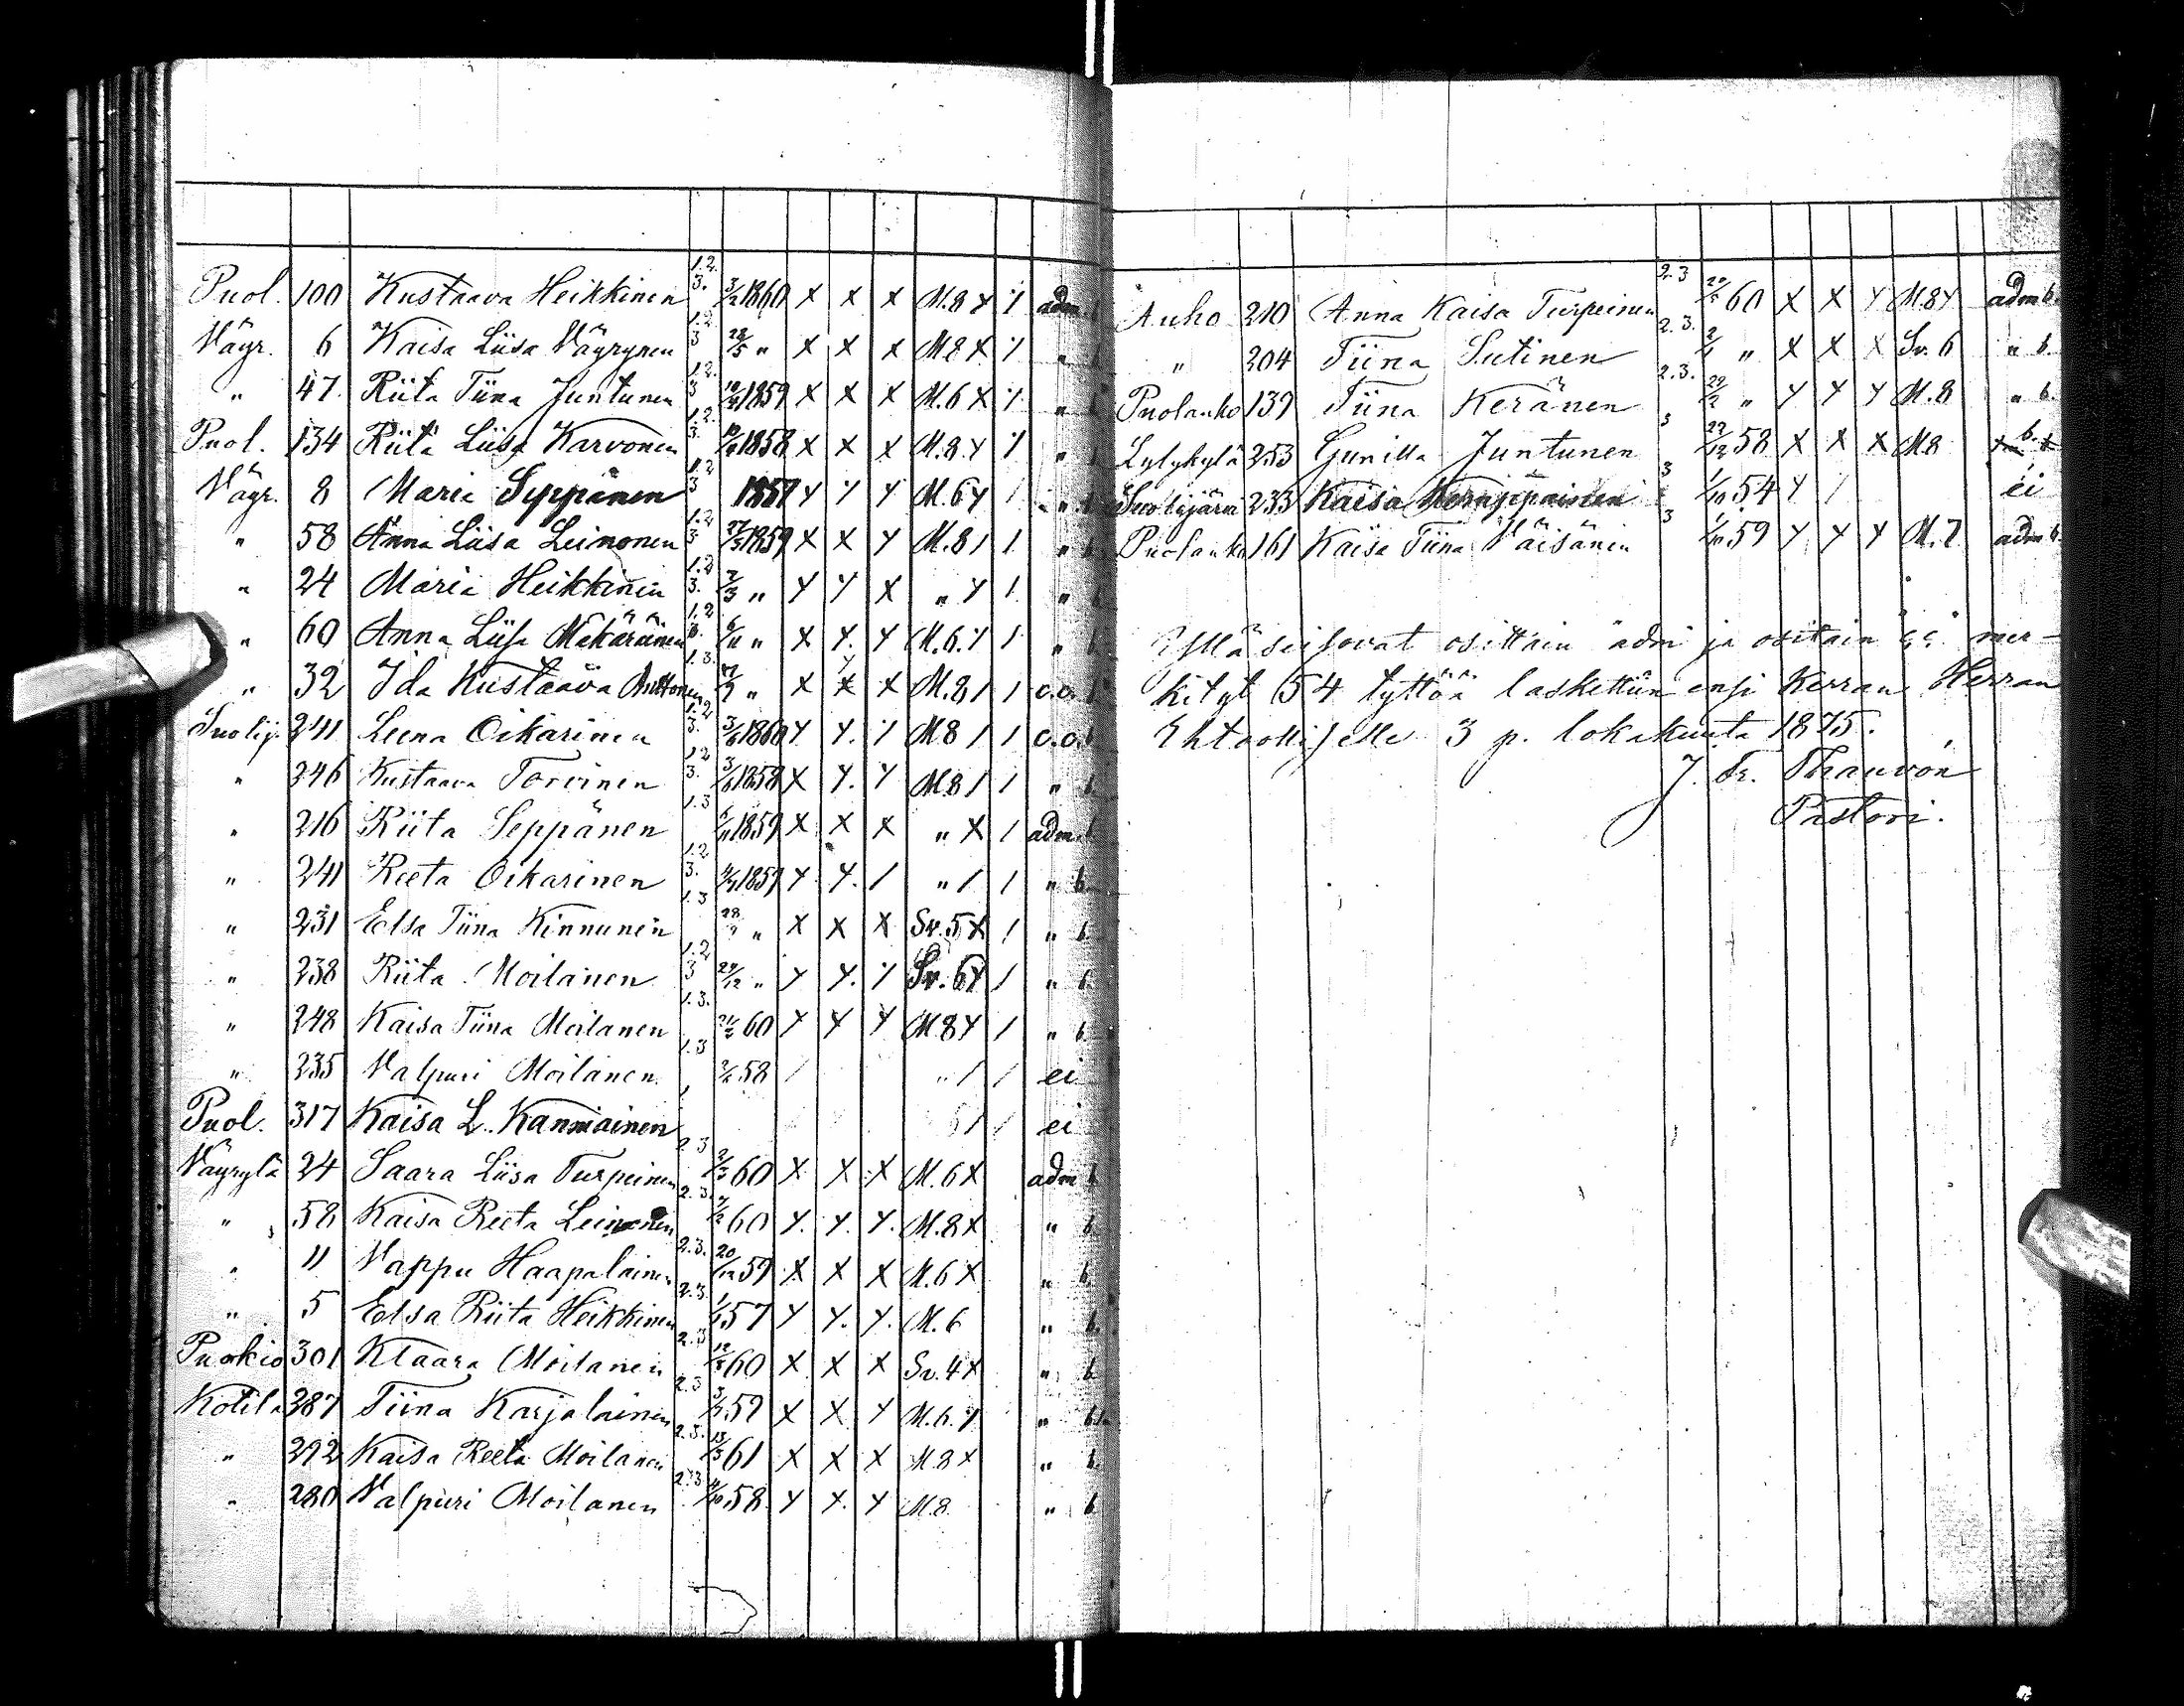 Puol. 100 Kustaava Heikkinen 1.2.3. 3/2 1860 x x x M.8 y 1 adm. b.
Väyr. 6 Kaisa Liisa Väyrynen 1.2.3 28/5 " x x x M8 x 1 " b.
" 47. Riita Tiina Juntunen 1.2.3 1859 x x x M.6 x 1 " b.
Puol. 134 Riita Liisa Karvonen 1.2.3. 1858 x x x M.8 y 1 " b.
Väyr. 8 Maria Seppänen 1.2.3 1857 y y y M.6 y 1 " b.
" 58 Anna Liisa Leinonen 1.2.3 27/3 1859 x x y M.8 1 1 " b.
" 24 Maria Heikkinen 1.2.3. 7/3 " y y x " y 1 " b.
" 60 Anna Liisa Mäkäräinen 1.2.3. 6/11 " x y. y M.6. y 1 " b.
" 32 Ida Kustaava Anttonen 1.3. " x x x M.8 1 1 o.o. b.
Suolij. 241 Leena Oikarinen 1.2.3. 3/6 1860 y y. 1 M8 1 1 o.o. b.
" 246 Kustaava Torvinen 1.2.3. 1858 x y. y M.8 1 1 " b.
" 216 Riita Seppänen 1.3 1859 x x x " x 1 adm. b.
" 241 Reeta Oikarinen 1.2.3. 1857 y y. 1 " 1 1 " b.
" 231 Elsa Tiina Kinnunen 1.3 " x x x Sv.5 x 1 " b.
" 238 Riita Moilanen 1.2.3 29/12 " y y. y Sv.6 y 1 " b.
" 248 Kaisa Tiina Moilanen 1.3. 60 y y y M8 y 1 " b.
" 235 Valpuri Moilanen 1.3 58 1 " 1 1 ei
Puol. 317 Kaisa L. Kanniainen 1 1 ei
Väyrylä 24 Saara Liisa Turpeinen 2.3 2/3 60 x x x M.6 x adm b.
" 58 Kaisa Reeta Leinonen 2.3. 60 y. y. y. M.8 x " b.
" 11 Vappu Haapalainen 2.3. 20/12 59 x x x M.6 x " b.
" 5 Elsa Riita Heikkinen 2.3. 57 y y. y. M.6 " b.
Puokio 301 Klaara Moilanen 2.3 60 x x x Sv.4 x " b.
Kotila 287 Tiina Karjalainen 2.3 59 x x y M.6. y " b.
" 292 Kaisa Reeta Moilanen 2.3. 13/3 61 x x x M.8 x " b.
" 280 Valpuri Moilanen 2.3 58 y y. y M.8. " b.
Auho 210 Anna Kaisa Turpeinen 2.3 60 x x y M.8 y adm b.
" 204 Tiina Sutinen 2.3. " x x x Sv. 6 " b.
Puolanko 139 Tiina Keränen 2.3. " y y y M.8 " b.
Lylykylä 253 Gunilla Juntunen 3 29/12 58 x x x M8 b.
Suolijärvi 233 Kaisa 3 1/10 54 y 1 ei
Puolanko 161 Kaisa Tiina Väisänen 3 1/10 59 y y y M.7 adm b.
Yllä seisovat osittain adm ja ositain o.o. mer-
kityt 54 tyttöä laskettiin ensi Kerran Herran
Ehtoolliselle 3 p. lokakuuta 1875.
J. Fr. Thauvon
Pastori.